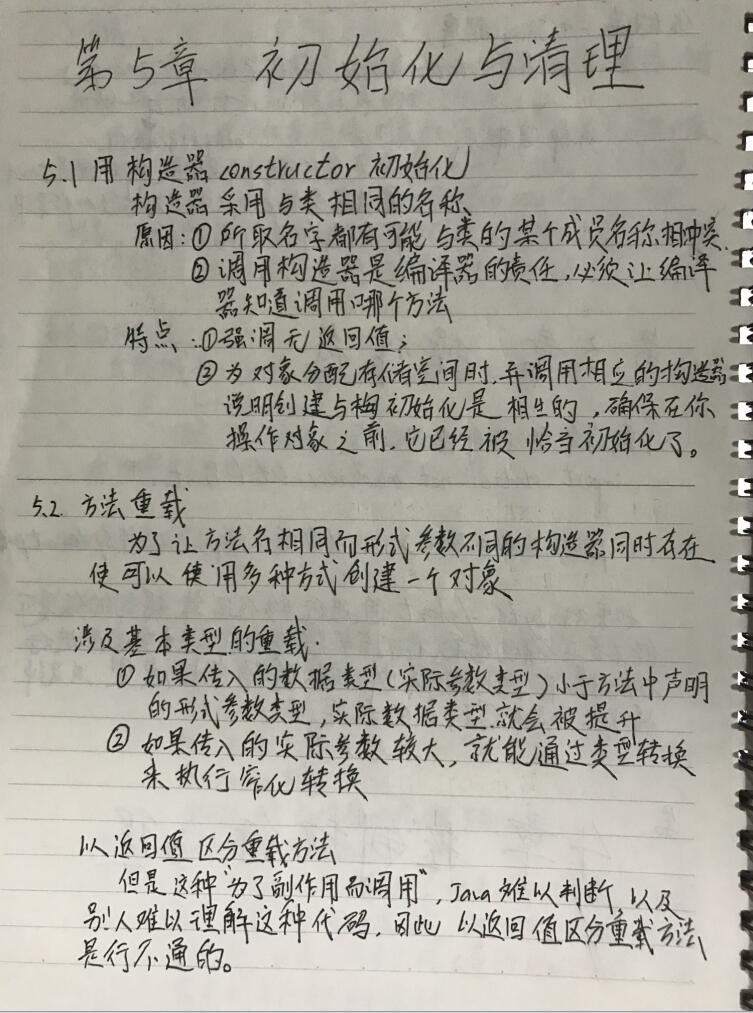 第5章 初始化与清理
5.1 用构造器 constructor 初始化
构造器采用与类相同的名称、
原因:① 所取名字都有可能与类的某个成员名称相冲突.
② 调用构造器是编译器的责任,必须让编译
器知道调用哪个方法
特点:①强调无返回值;
② 为对象分配存储空间时,并调用相应的构造器
说明创建与初始化是相生的,确保在你
操作对象之前,它已经被恰当初始化了。
5.2. 方法重载
为了让方法名相同而形式参数不同的构造器同时存在
使可以使用多种方式创建一个对象
涉及基本类型的重载.
① 如果传入的数据类型(实际参数类型)小于方法中声明
的形式参数类型,实际数据类型就会被提升
② 如果传入的实际参数较大,就能通过类型转换
来执行窄化转换
以返回值区分重载方法
但是这种“为了副作用而调用”,Java难以判断,以及
别人难以理解这种代码,因此以返回值区分重载方法
是行不通的。